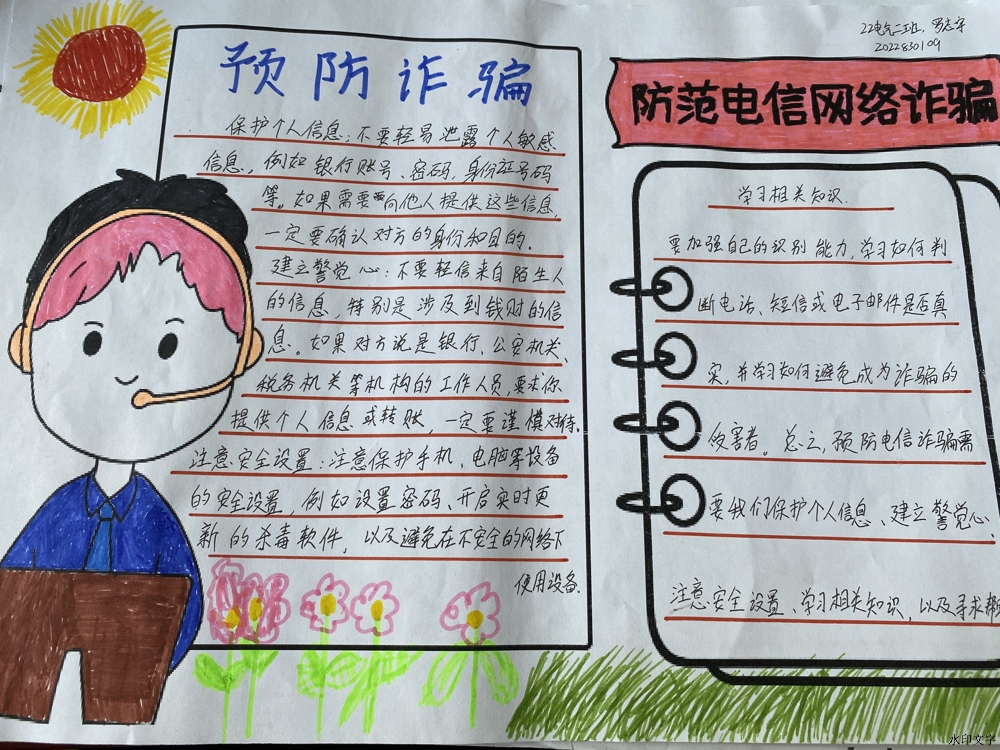 22电气二班.
2022830109
预防诈骗
保护个人信息:不要轻易泄露个人敏感
信息,例如银行账号、密码,身份证号码
等。如果需要向他人提供这些信息,
一定要确认对方的身份和目的.
建立警觉心:不要轻信来自陌生人
的信息,特别是涉及到钱财的信
息。如果对方说是银行、公安机关、
税务机关等机构的工作人员,要求你
提供个人信息或转账,一定要谨慎对待.
注意安全设置:注意保护手机、电脑等设备
的安全设置,例如设置密码、开启实时更
新的杀毒软件,以及避免在不安全的网络下
使用设备.
防范电信网络诈骗
学习相关知识.
要加强自己的识别能力,学习如何判
断电话、短信或电子邮件是否真
实,并学习如何避免成为诈骗的
受害者。总之,预防电信诈骗需
要我们保护个人信息、建立警觉心、
注意安全设置、学习相关知识,以及寻求帮
水印文字